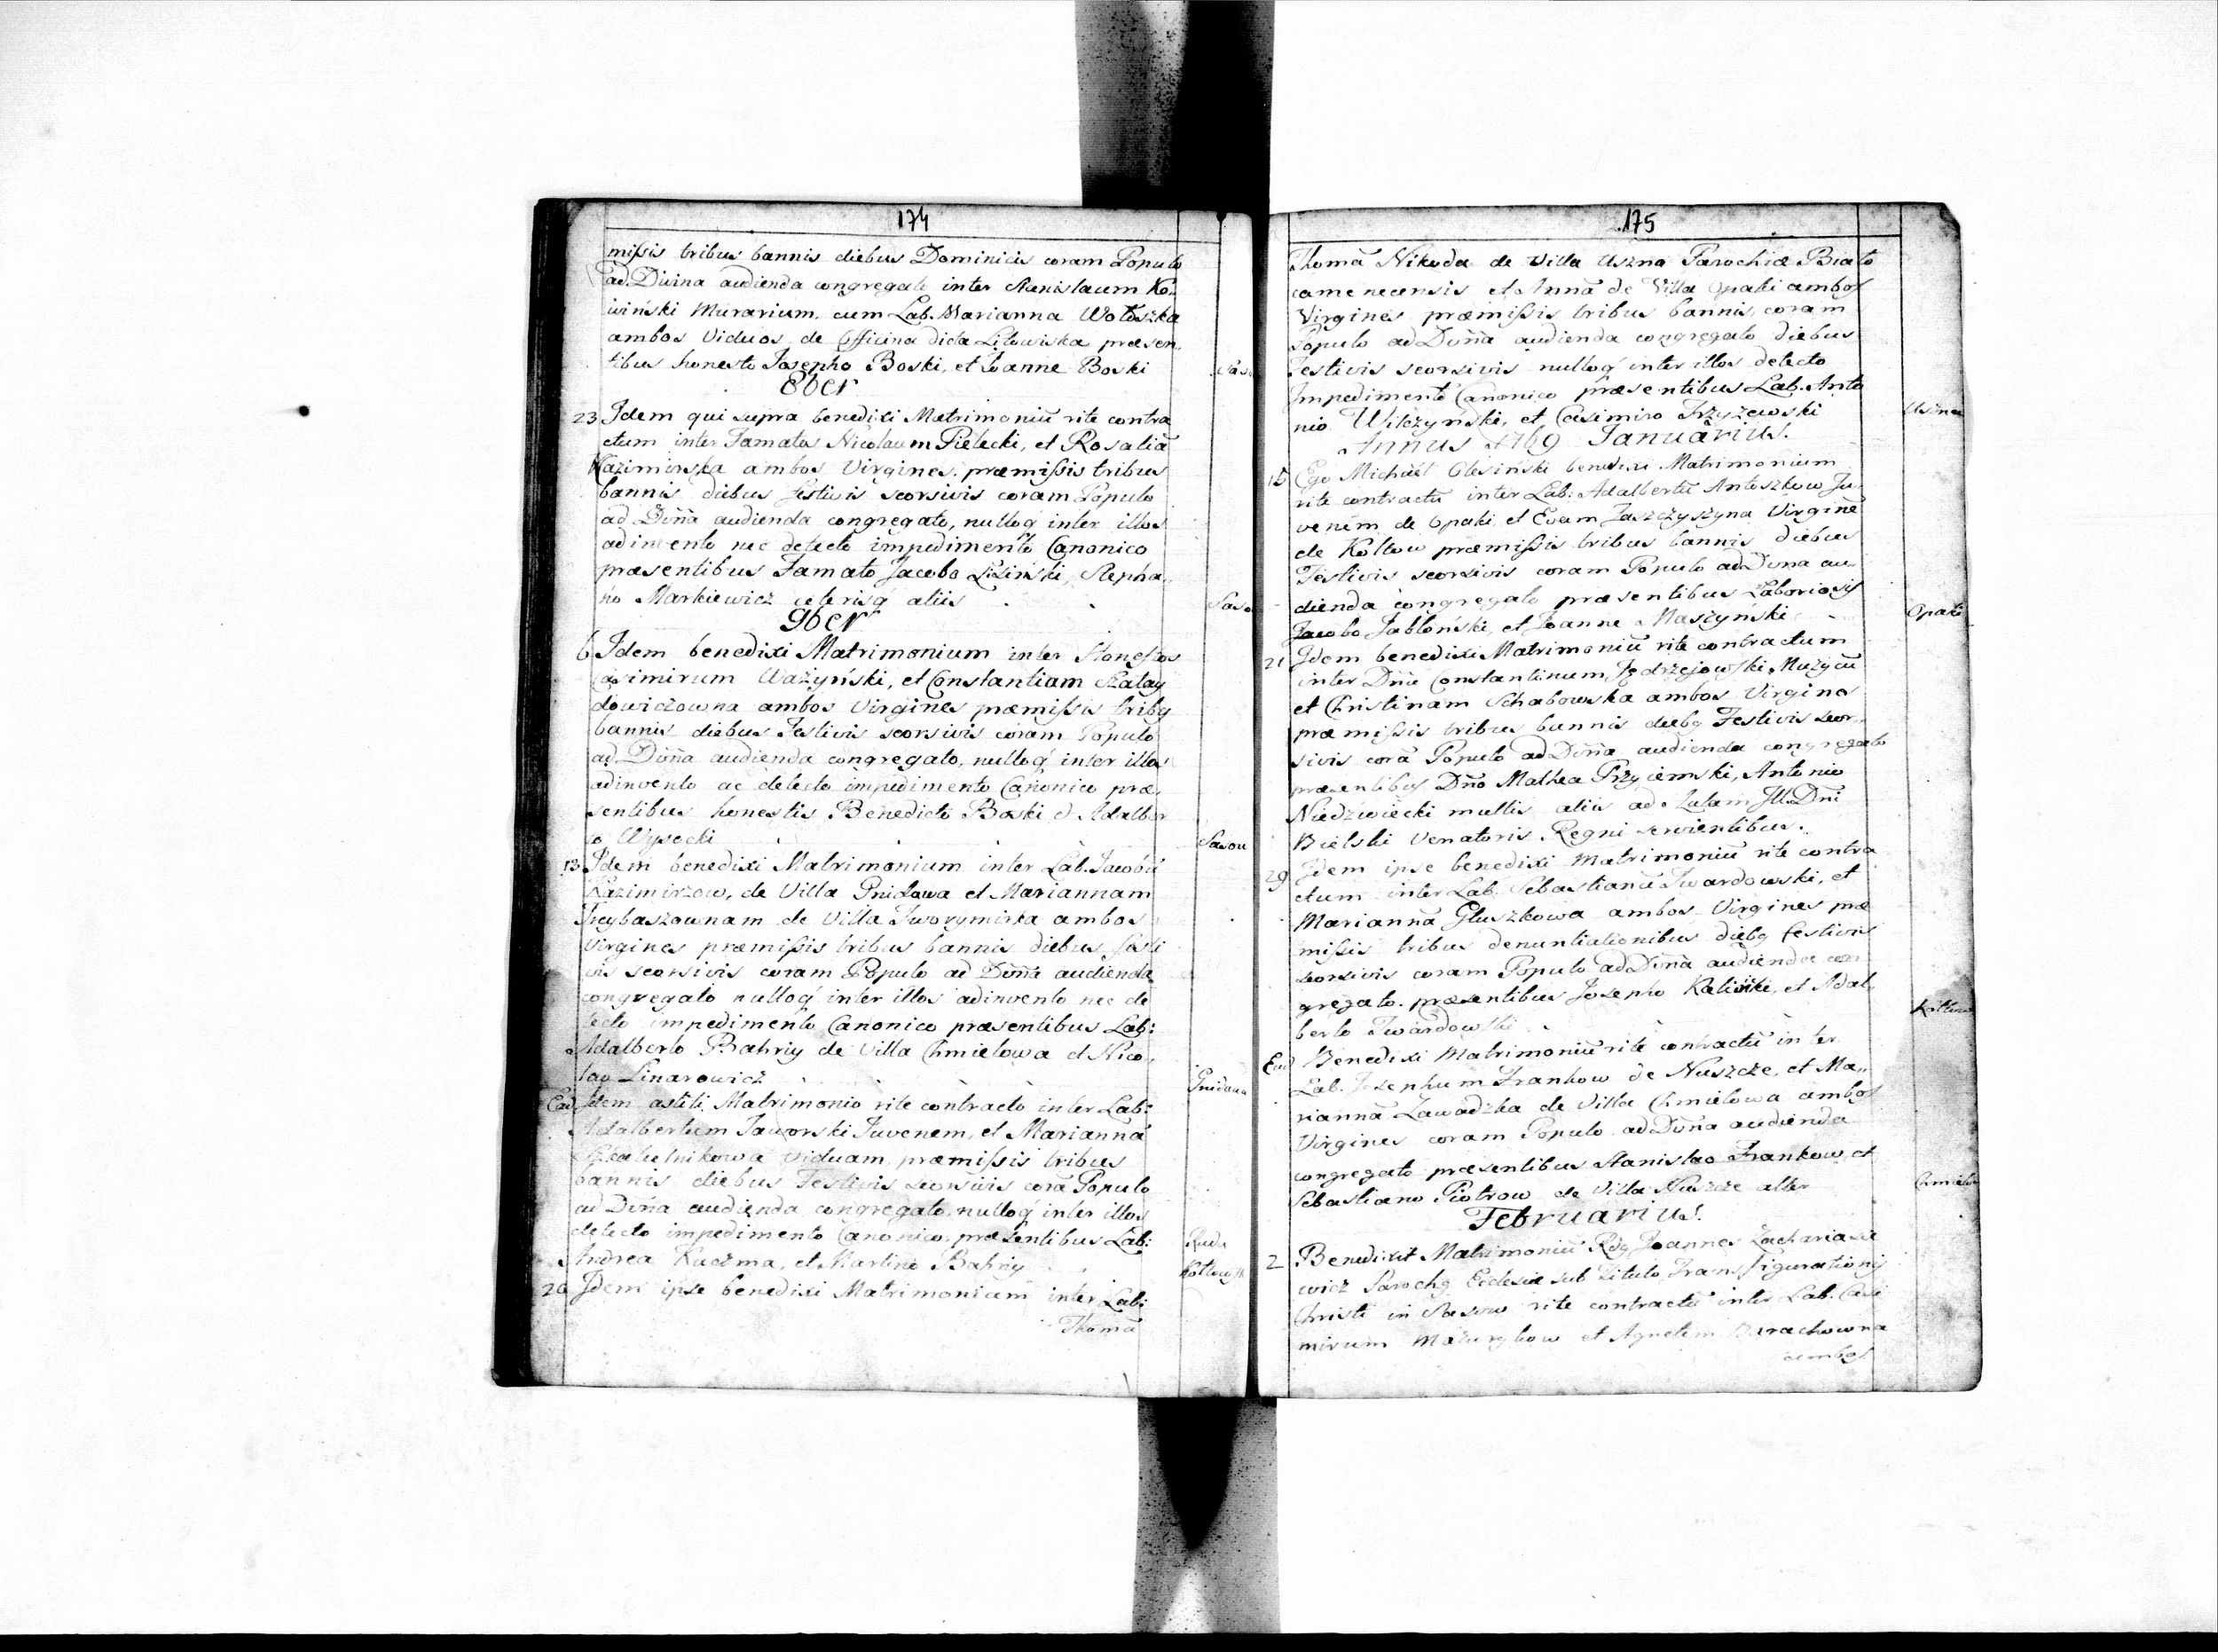 174
missis tribus bannis diebus Dominicis coram Populo
ad Divina audienda congregato inter Stanislaum Ko-
wiński Murarium cum Lab. Marianna Wołoszka
ambos Viduos de Officina dicta Litowiska præsen
tibus honesto Josepho Boski, et Joanne Boski
Saso
8ber
23 Idem qui supra benedixi Matrimoniū rite contra
ctum inter Famatos Nicolaum Pielecki, et Rosaliā
Kazimirska ambos Virgines præmissis tribus
bannis diebus festivis seorsivis coram Populo
ad Diīna audienda congregato, nulloq́ inter illos
adinvento nec detecto impedimento Canonico
præsentibus Famato Jacobo Liziński, Stepha
no Markiewicz ceterisq́ aliis
Saso
9ber
6 Idem benedixi Matrimonium inter Honestos
Casimirum Ważyński, et Constantiam Szałay
dowiczowna ambos Virgines præmissis tribq
bannis diebus Festivis seorsivis coram Populo
ad Diīna audienda congregato, nulloq́ inter illos
adinvento ac detecto impedimento Canonico præ
sentibus honestis Benedicto Boski et Adalber
to Wysocki
Sasou
13 Idem benedixi Matrimonium inter Lab. Jacobū
Kazimirzow, de Villa Gnidawa et Mariannam
Freybaszownam de Villa Tworymirka ambos
Virgines præmissis tribus bannis diebus festi
vis seorsivis coram Populo ad Diīna audienda
congregato nulloq́ inter illos adinvento nec de
tecto impedimento Canonico præsentibus Lab:
Adalberto Bahriy de Villa Chmielowa et Nico
lao Linarowicz
Gnidawa
Ead Idem astiti Matrimonio rite contracto inter Lab:
Adalbertum Jaworski Juvenem, et Mariannā
viduam præmissis tribus
bannis diebus Festivis seorsivis corā Populo
ad Diīna audienda congregato, nulloq́ inter illos
detecto impedimento Canonico præsentibus Lab:
Andrea Kuczma, et Martino Bahriy
Ruda
Kołtowsk
20 Idem ipse benedixi Matrimonium inter Lab:
Thomā
175
Thomā Nikoda de Villa Uszna Parochiæ Biało
camenecensis et Annā de Villa Opaki ambos
Virgines præmissis tribus bannis, coram
Populo ad Diīna audienda congregato diebus
Festivis seorsivis nulloq́ inter illos detecto
Impedimento Canonico præsentibus Lab. Anto
nio Wilczyński, et Casimiro Krzyżewski
Uszna
Annus 1769 Januarius.
15 Ego Michäel Olesiński benedixi Matrimonium
rite contractū inter Lab: Adalbertū Antoszkow Ju
venem de Opaki et Evam Jaszczyszyna Virginē
de Kołtow præmissis tribus bannis diebus
Festivis seorsivis coram Populo ad Divina au
dienda congregato præsentibus Laboriosis
Jacobo Jabłoński, et Joanne Maszyński
Opaki
21 Idem benedixi Matrimoniū rite contractum
inter Dnū Constantinum Jędrzejowski Muzycū
et Christinam Schabowska ambos Virgines
præmissis tribus bannis diebq Festivis seor
sivis corā Populo ad Diīna audienda congregato
præsentibus Dno Mathea Przyiemski, Antonio
Niedzwiecki multis aliis ad Aulam Ill. Dni
Bielski Venatoris Regni servientibus.
29 Idem ipse benedixi Matrimoniū rite contra
ctum inter Lab. Sebastianū Twardowski, et
Mariannā Głuszkowa ambos Virgines præ
missis tribus denuntiationibus diebq festivis
seorsivis coram Populo ad Diīna audienda con
gregato præsentibus Josepho Kaliński, et Adal
berto Twardowski
Kołtow
Ead Benedixi Matrimoniū rite contractū inter
Lab. Josephum Frankow de Nuszcze, et Ma
riannā Zawadzka de Villa Chmielowa ambos
Virgines coram Populo ad Diīna audienda
congregato præsentibus Stanislao Frankow, et
Sebastiano Piotrow de Villa Nuszcze alter
Chmielo
Februarius.
2 Benedixit Matrimoniū Rdq Joannes Zachariasie
wicz Parochq Ecclesiæ sub titulo Transfigurationis
Christi in Sasow rite contractū inter Lab. Casi
mirum Mazurykow et Agnetem Burachowna
ambos